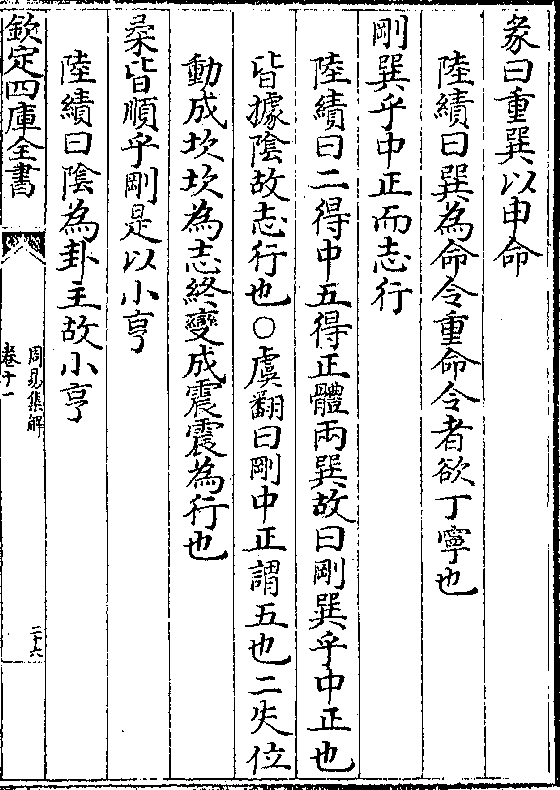 彖曰重巽以申命
陸績曰巽為命令重命令者欲丁寧也
剛巽乎中正而志行
陸績曰二得中五得正體兩巽故曰剛巽乎中正也
皆據陰故志行也○虞翻曰剛中正謂五也二失位
動成坎坎為志終變成震震為行也
柔皆順乎剛是以小亨
陸績曰陰為卦主故小亨
欽定四庫全書
周易集解
卷十一
二十六